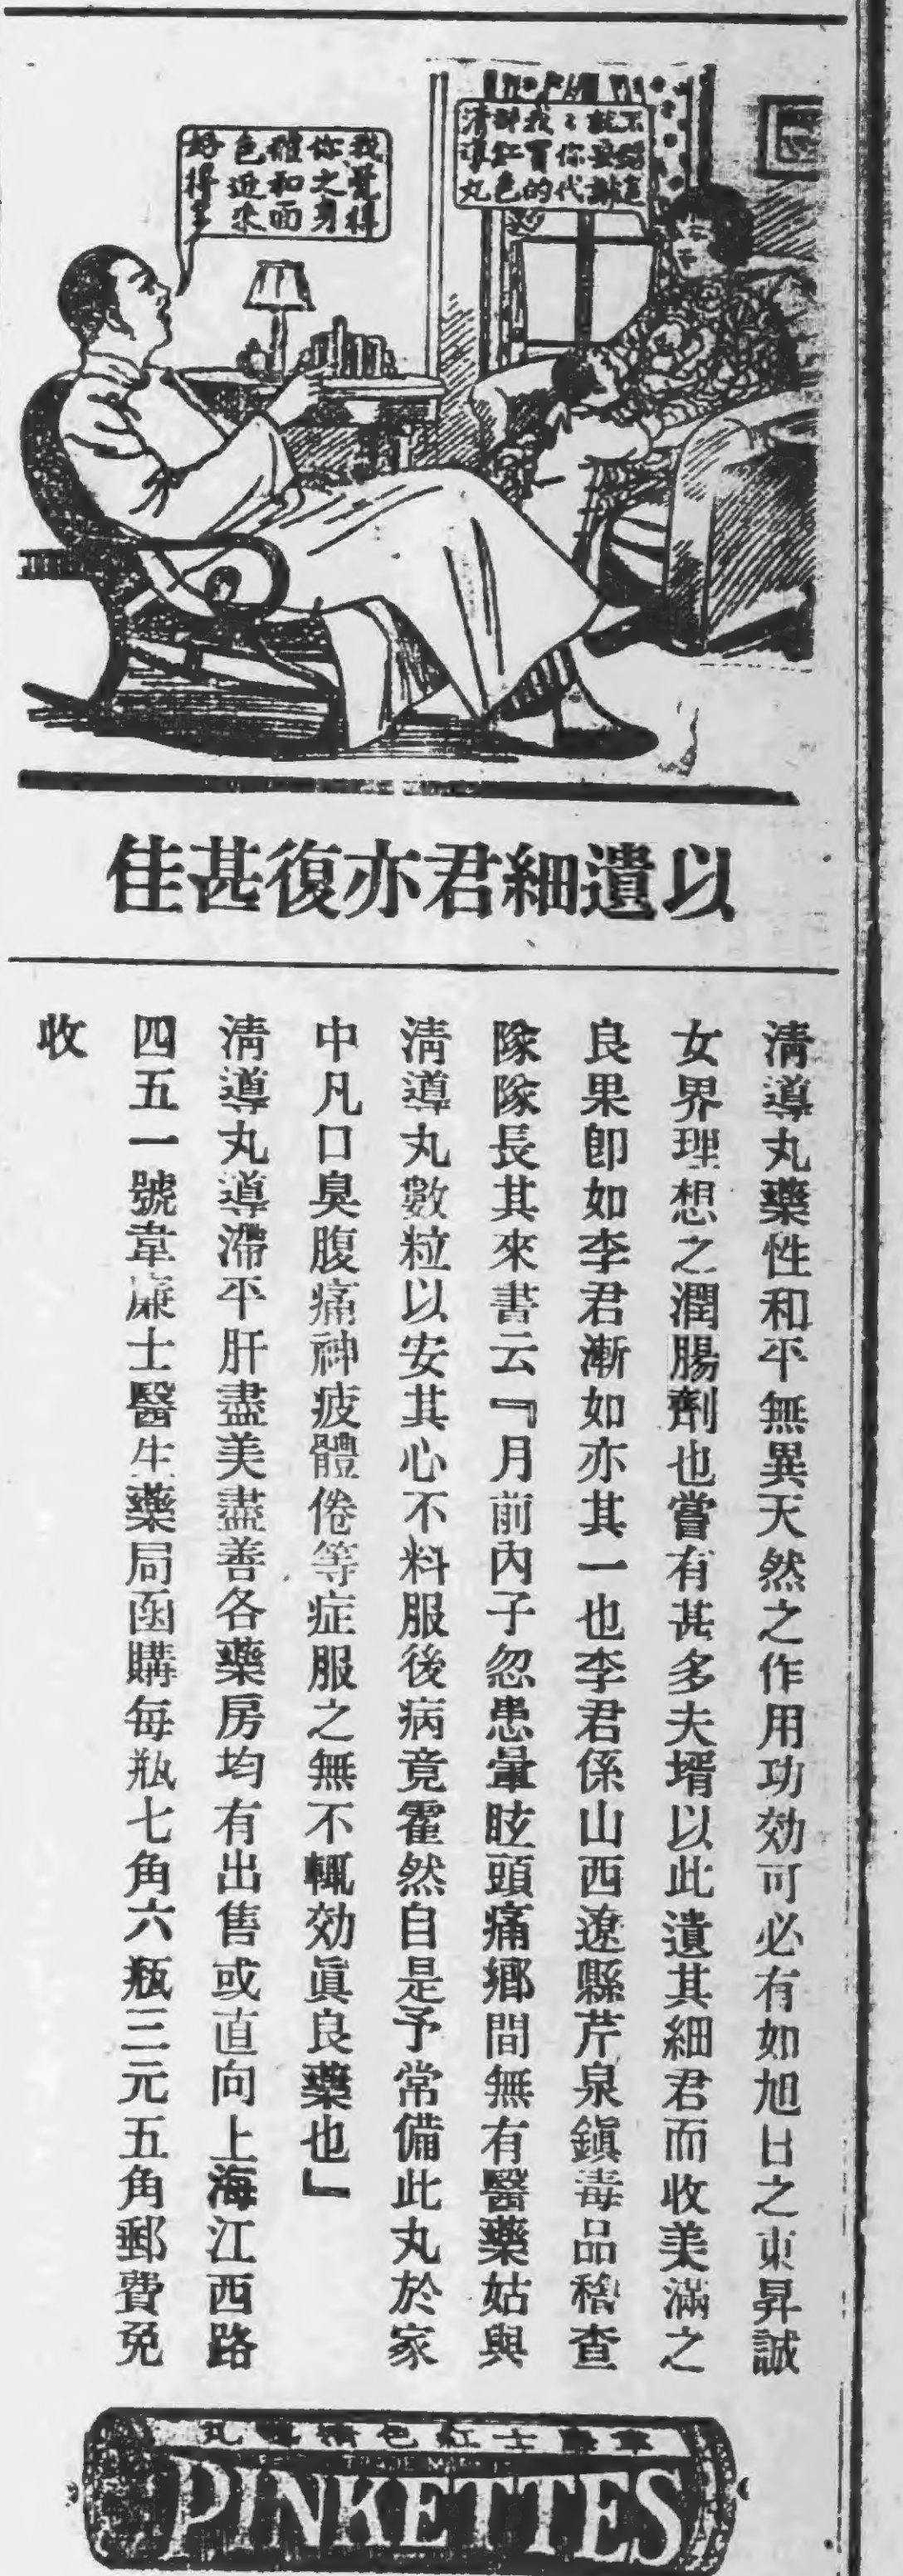 我覺得
你之身
體和面
色近來
好得多
就
你代
我買的
那紅色
清導丸
以遺細君亦復甚佳
清導丸藥性和平無異天然之作用功効可必有如旭日之東昇誠
女界理想之潤腸劑也嘗有甚多夫壻以此遺其細君而收美滿之
良果卽如李君漸如亦其一也李君係山西遼縣芹泉鎭毒品稽查
隊隊長其來書云『月前內子忽患暈眩頭痛鄕間無有醫藥姑與
淸導丸數粒以安其心不料服後病竟霍然自是予常備此丸於家
中凡口臭腹痛神疲體倦等症服之無不輒効眞良藥也』
淸導丸導滯平肝盡美盡善各藥房均有出售或直向上海江西路
四五一號韋廉士醫生藥局函購每瓶七角六瓶三元五角郵費免
收
韋廉士紅色清導丸
TRADE MARK
PINKETTES